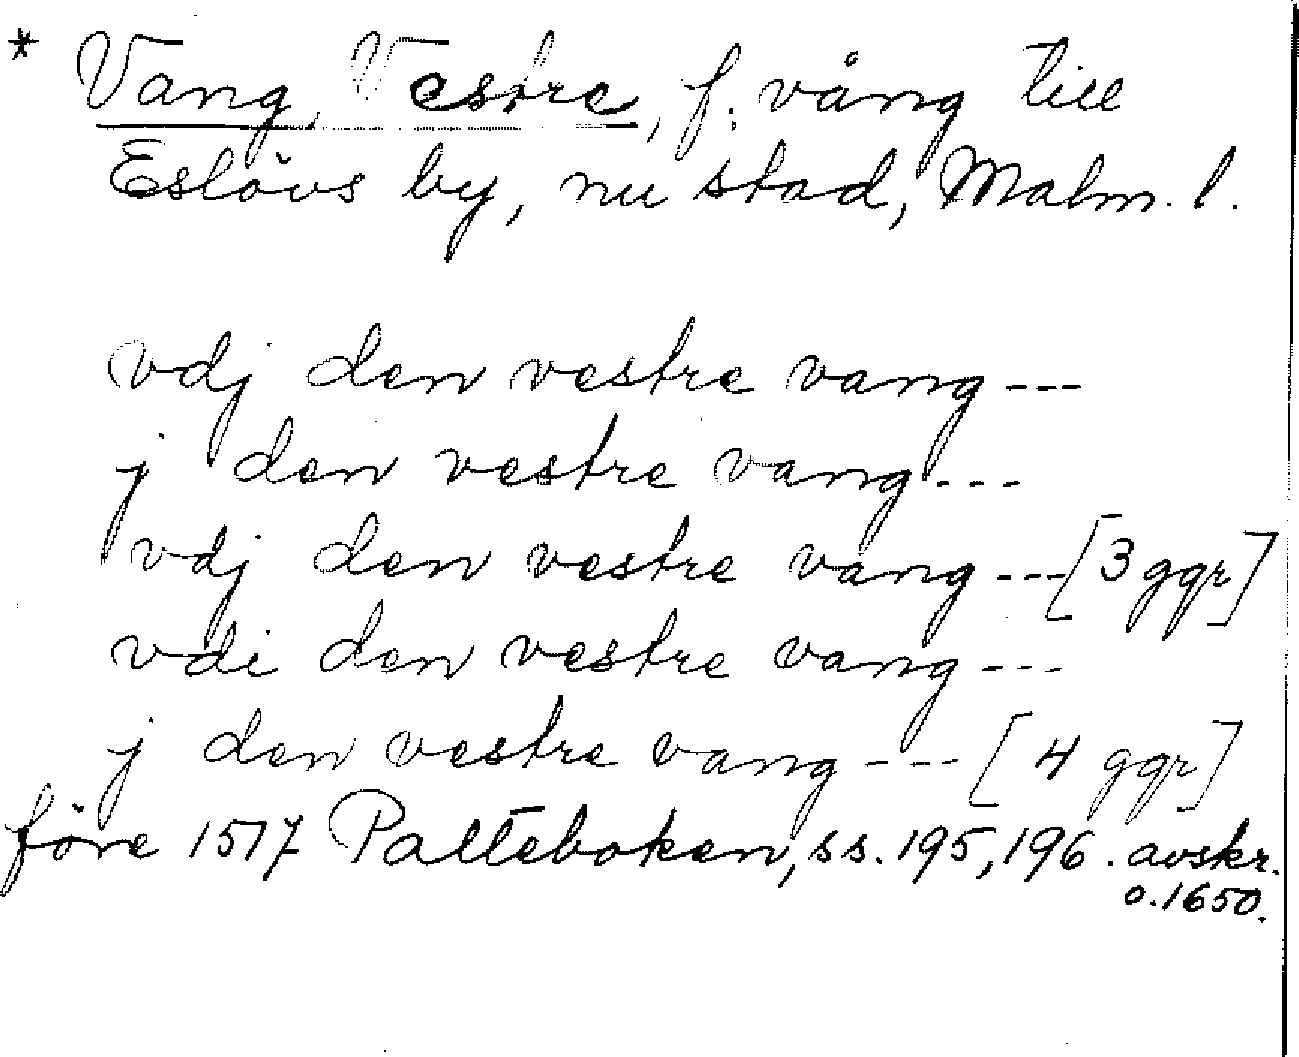 * Vang, Vestre, f. vång till
Eslövs by, nu stad, Malm. l.
vdj den vestre vang ---
j den vestre vang ---
vdj den vestre vang --- [3 ggr]
vdi den vestre vang ---
j den vestre vang --- [4 ggr]
före 1517 Palteboken, ss. 195, 196. avskr.
o. 1650.